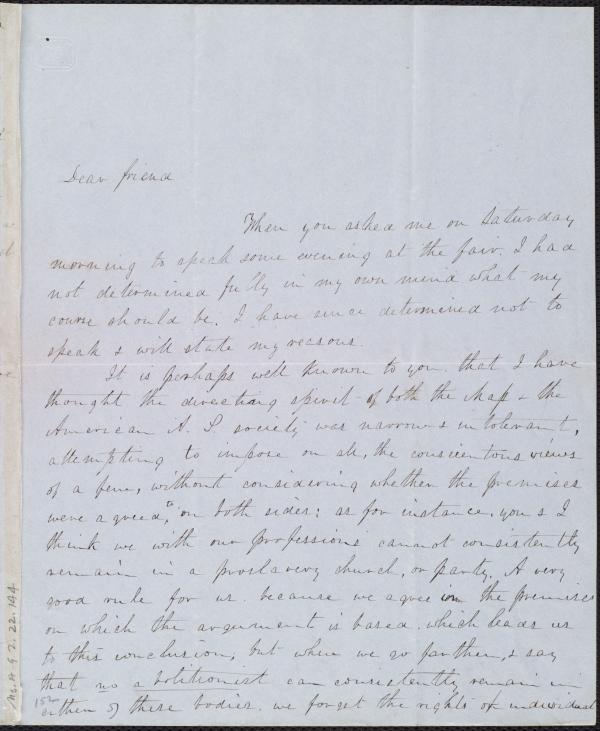 Dear friend
When you asked me on Saturday
morning to speak some evening at the fair, I had
not determined fully in my own mind what my
course should be. I have since determined not to
speak & will state my reasons.
It is perhaps well known to you that I have
thought the directing spirit of both the Mass & the
American A. S. society was narrow & intolerant,
attempting to impose on all, the consientous views
of a few, without considering whether the premises
were agreed to on both sides; as for instance, you & I
think we with our professions cannot consistently
remain in a proslavery church, or party. A very
good rule for us. because we agree in the premises
on which the argument is based. which leads us
to this conclusion, but when we go farther, & say
that no abolitionist can consistently remain in
either of these bodies. we forget the rights of individual
Ms. A 9 2. 22. 144